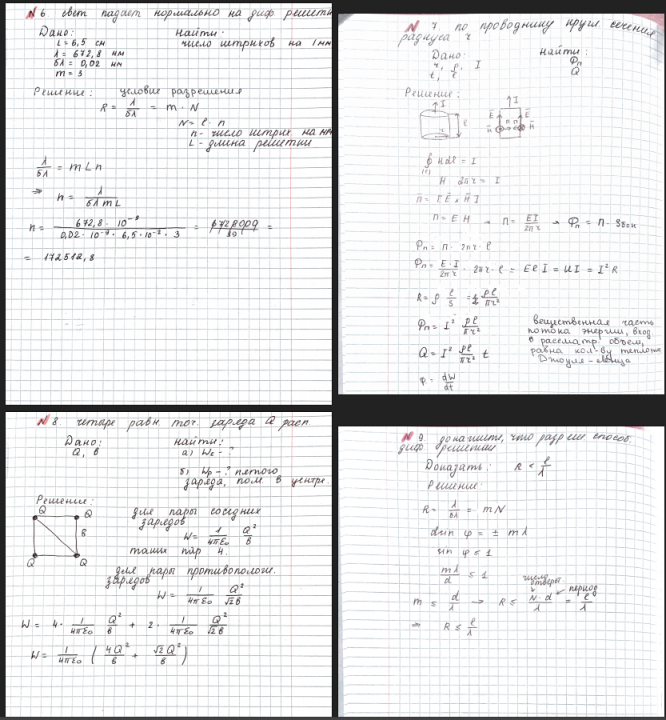 №6 свет падает нормально на диф. решетк
Дано:
L = 6,5 см
λ = 672,8 нм
δλ = 0,02 нм
m = 3
Найти:
число штрихов на 1 мм
Решение: условие разрешения
R = λ/δλ = m · N
N = l · n
n - число штрих на мм
L - длина решетки
λ/δλ = m L n
⇒ n = λ/(δλ m L)
n = 672,8 · 10⁻⁹ / (0,02 · 10⁻⁹ · 6,5 · 10⁻² · 3) = 6728000/39 =
= 172512,8
№ 7 по проводнику кругл. сечения
радиуса r
Дано:
r, ρ, I
t, l
Найти:
Фп
Q
Решение:
∮ H dl = I
H 2πr = I
П = [E × H]
П = E H → П = EI/2πr → Фп = П · Sбок
Фп = П · 2πr · l
Фп = E·I/2πr · 2πr · l = E l I = U I = I² R
R = ρ l/S = ρl/πr²
Фп = I² ρl/πr²
Q = I² ρl/πr² t
φ = dW/dt
вещественная часть
потока энергии, вход
в рассматр. объем,
равна кол-ву теплоты
Джоуля-Ленца
№ 8 четыре равн точ. заряда Q расп.
Дано:
Q, в
Найти:
а) - ?
б) Wp - ? пятого
заряда, пом в центре
Решение:
Q Q
в
Q Q
для пары соседних
зарядов
W = 1/4πε₀ Q²/в
таких пар 4.
для пары противополож.
зарядов
W = 1/4πε₀ Q²/√2в
W = 4 · 1/4πε₀ Q²/в + 2 · 1/4πε₀ Q²/√2в
W = 1/4πε₀ (4Q²/в + √2Q²/в)
№ 9 докажите, что разреш способ.
диф решетки
Доказать: R < l/λ
Решение:
R = λ/δλ = mN
d sin φ = ± mλ
sin φ ≤ 1
mλ/d ≤ 1
число
отверст
период
m ≤ d/λ → R ≤ N · d/λ = l/λ
⇒ R ≤ l/λ